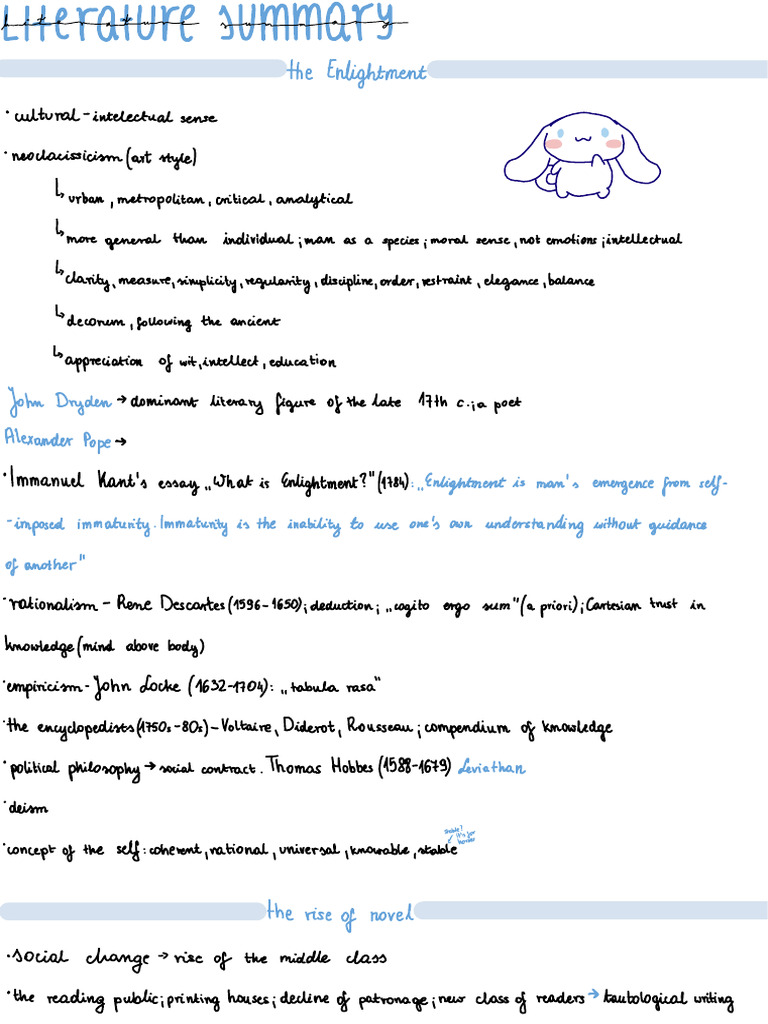 Literature summary
literature summary
the Enlightment
• cultural - intelectual sense
• neoclacissicism (art style)
↳ urban, metropolitan, critical, analytical
↳ more general than individual; man as a species; moral sense, not emotions; intellectual
↳ clarity, measure, simplicity, regularity, discipline, order, restraint, elegance, balance
↳ decorum, following the ancient
↳ appreciation of wit, intellect, education
John Dryden → dominant literary figure of the late 17th c.; a poet
Alexander Pope →
• Immanuel Kant's essay „What is Enlightment?" (1784): „Enlightment is man's emergence from self-
-imposed immaturity. Immaturity is the inability to use one's own understanding without guidance
of another"
• rationalism - Rene Descartes (1596-1650); deduction; „cogito ergo sum" (a priori); Cartesian trust in
knowledge (mind above body)
• empiricism - John Locke (1632-1704): „tabula rasa"
• the encyclopedists (1750s-80s) - Voltaire, Diderot, Rousseau; compendium of knowledge
• political philosophy → social contract. Thomas Hobbes (1588-1679) Leviathan
• deism
• concept of the self: coherent, rational, universal, knowable, stable
the rise of novel
• social change → rise of the middle class
• the reading public; printing houses; decline of patronage; new class of readers → tautological writing